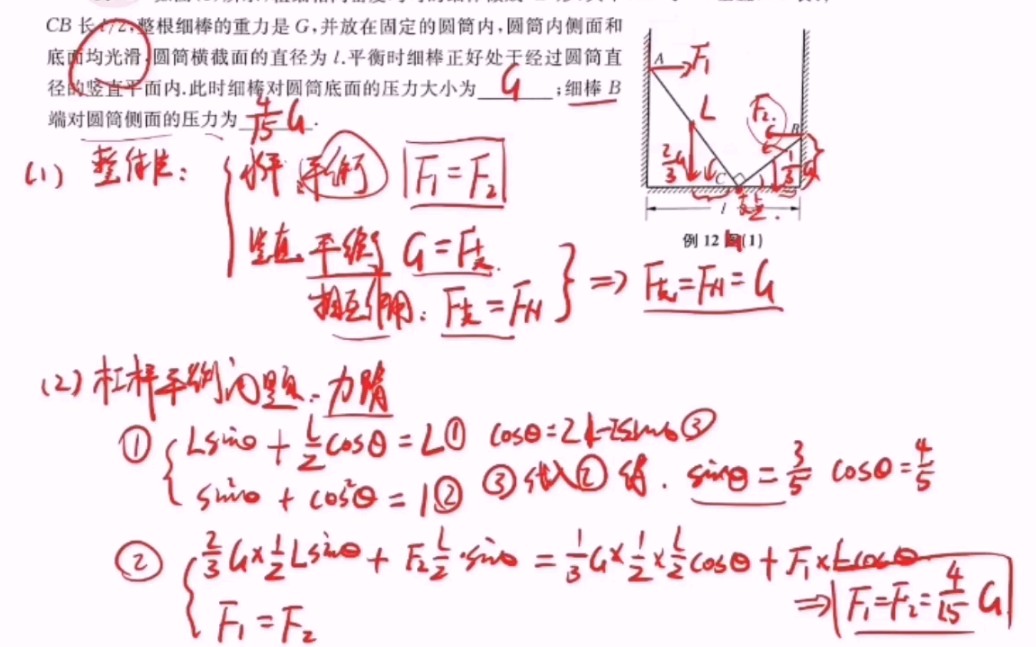 CB 长 l/2,整根细棒的重力是 G,并放在固定的圆筒内,圆筒内侧面和
底面均光滑,圆筒横截面的直径为 l.平衡时细棒正好处于经过圆筒直
径的竖直平面内.此时细棒对圆筒底面的压力大小为 G ;细棒 B
端对圆筒侧面的压力为 4/15 G .
A F₁
L
F₂
B
2/3 G
C
1/3 G
l
例 12 图(1)
(1) 整体法: 水平 平衡 F₁=F₂
竖直 平衡 G=F支
相互作用: F支=F压 } => F支=F压=G
(2) 杠杆平衡问题: 力臂
① Lsinθ + L/2 cosθ = L ① cosθ=2-2sinθ ③
sin²θ + cos²θ = 1 ② ③代入②得. sinθ=3/5 cosθ=4/5
② 2/3 G×1/2 Lsinθ + F₂ L/2·sinθ = 1/3 G×1/2×L/2 cosθ + F₁×Lcosθ
F₁=F₂ => F₁=F₂=4/15 G